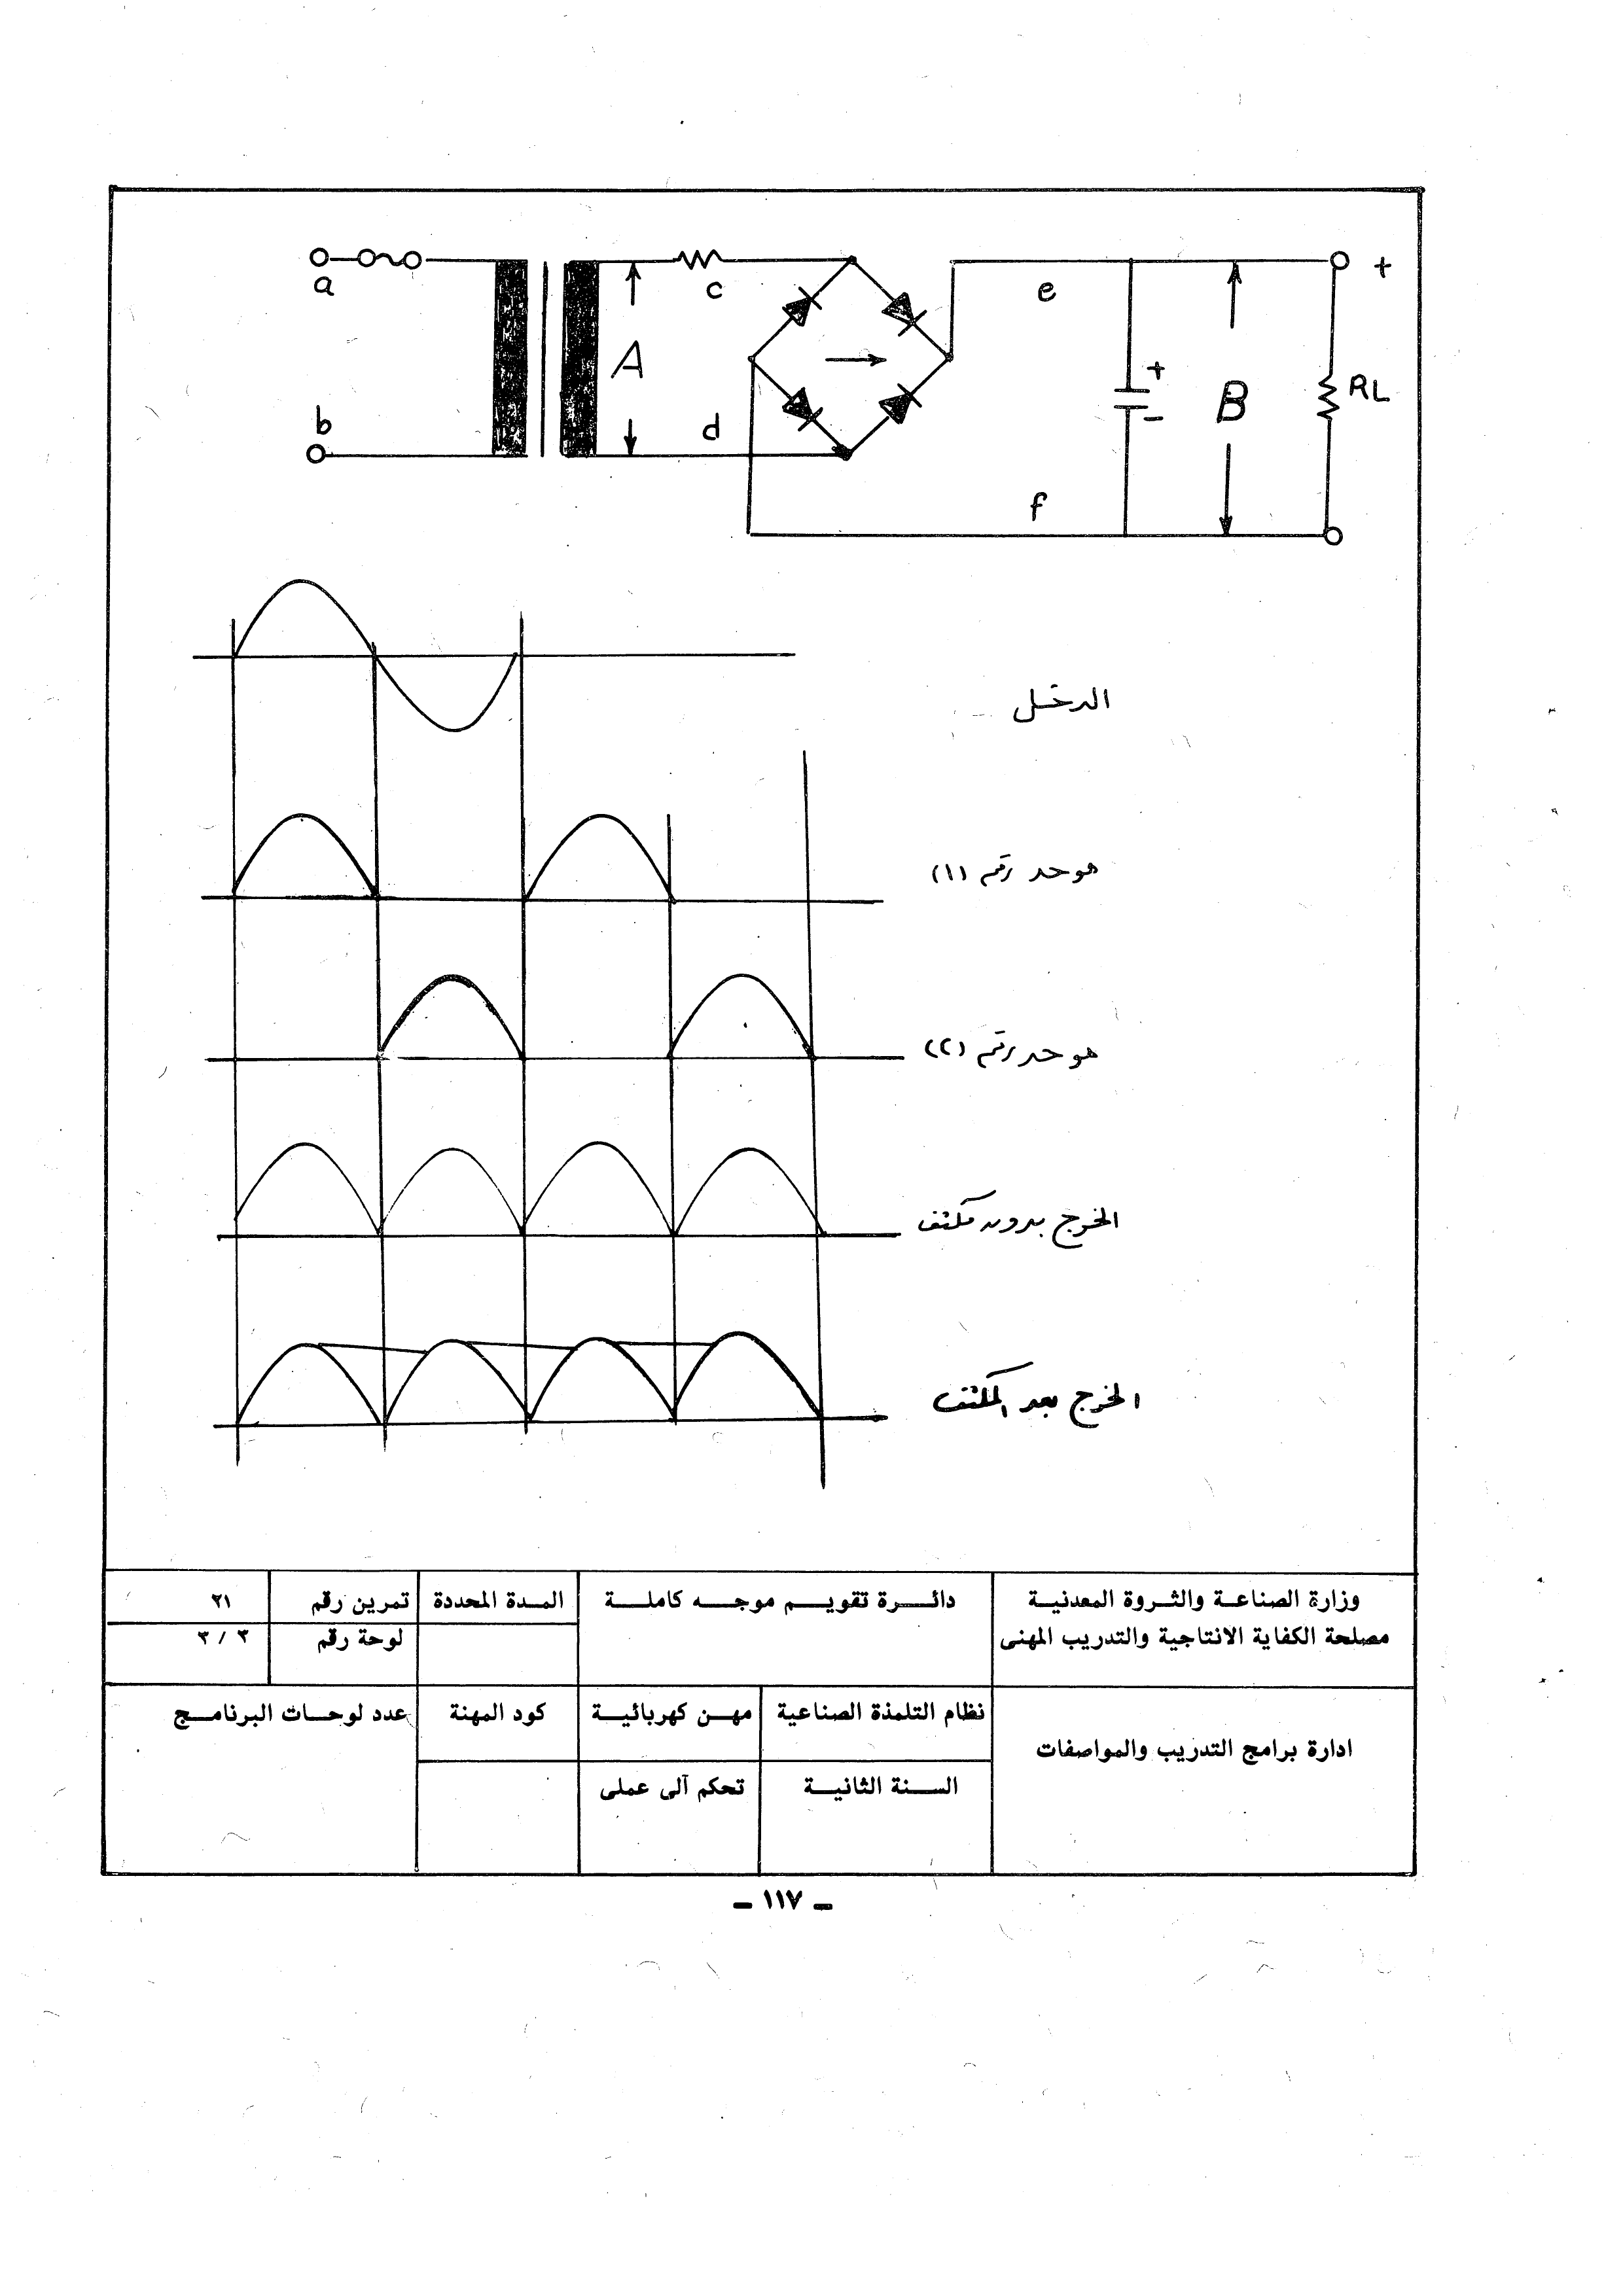 a
b
A
c
d
e
f
+
-
B
RL
+
الدخل
موحد رقم (١)
موحد رقم (٢)
الخرج بدون مكثف
الخرج بعد المكثف
وزارة الصناعـة والثـروة المعدنيـة
مصلحة الكفاية الانتاجية والتدريب المهنى
دائـــرة تقويـــم موجـــه كاملـــة
المـدة المحددة
تمرين رقم
٢١
لوحة رقم
٣ / ٣
ادارة برامج التدريب والمواصفات
نظام التلمذة الصناعية
مهـن كهربائيـة
كود المهنة
عدد لوحـات البرنامـج
الســنة الثانيــة
تحكم آلى عملى
ـ ١١٧ ـ